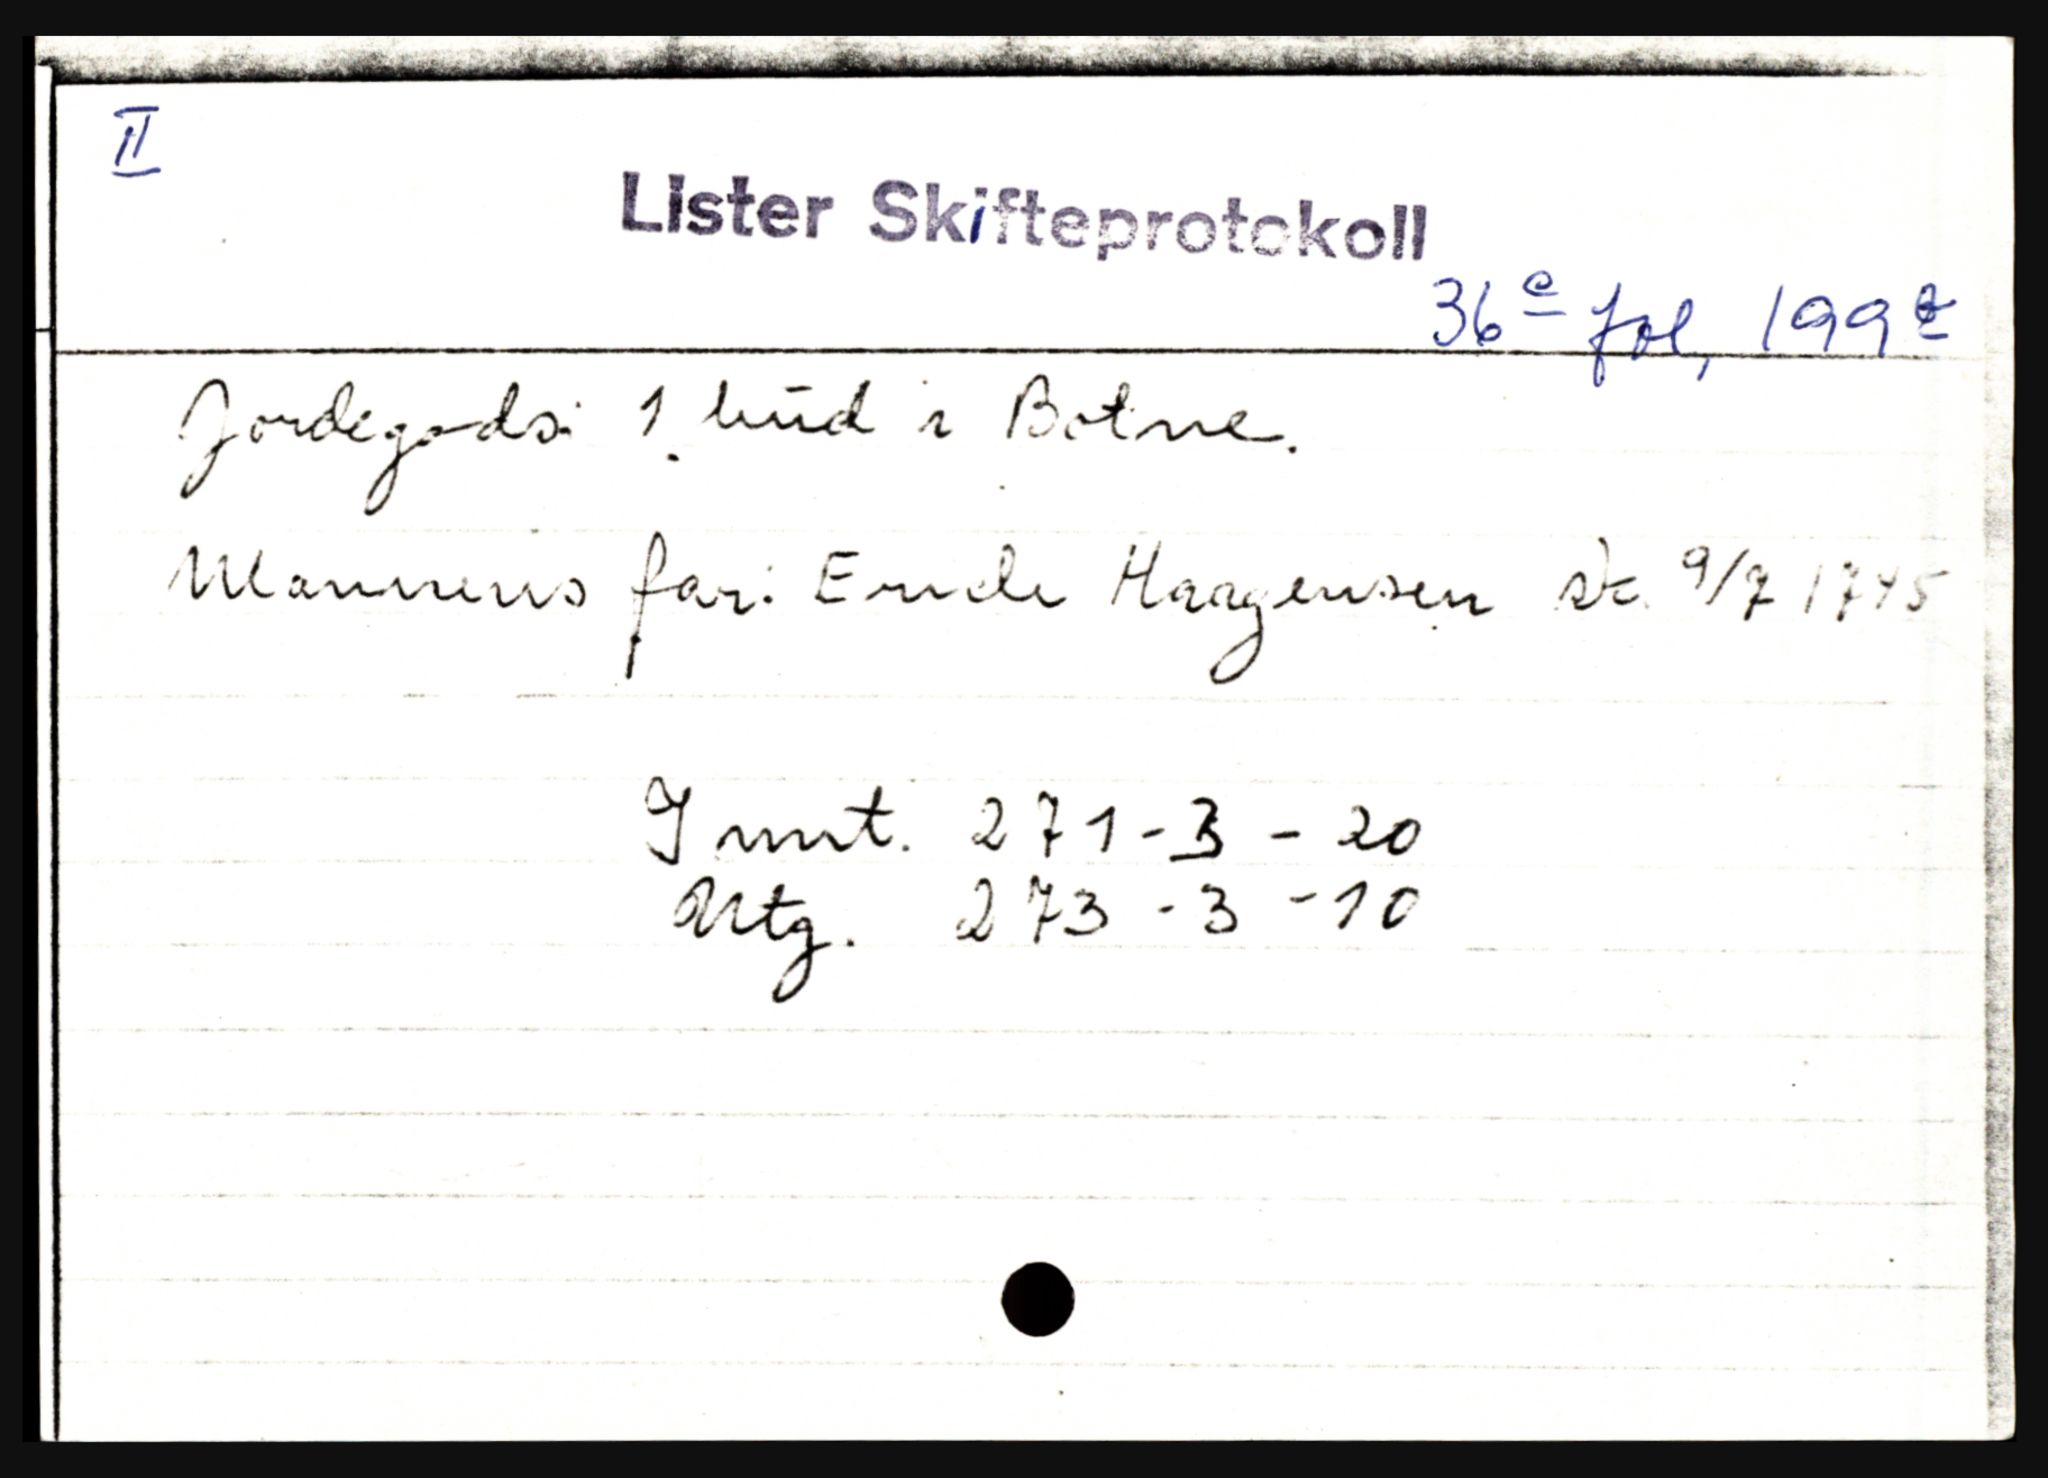 II
Lister Skifteprotokoll
36 c fol, 199 b
Jordegods: 1 hud i Botne.
Mannens far: Ende Haagensen sk. 9/7 1745
Innt. 271 - 3 - 20
Utg. 273 - 3 - 10